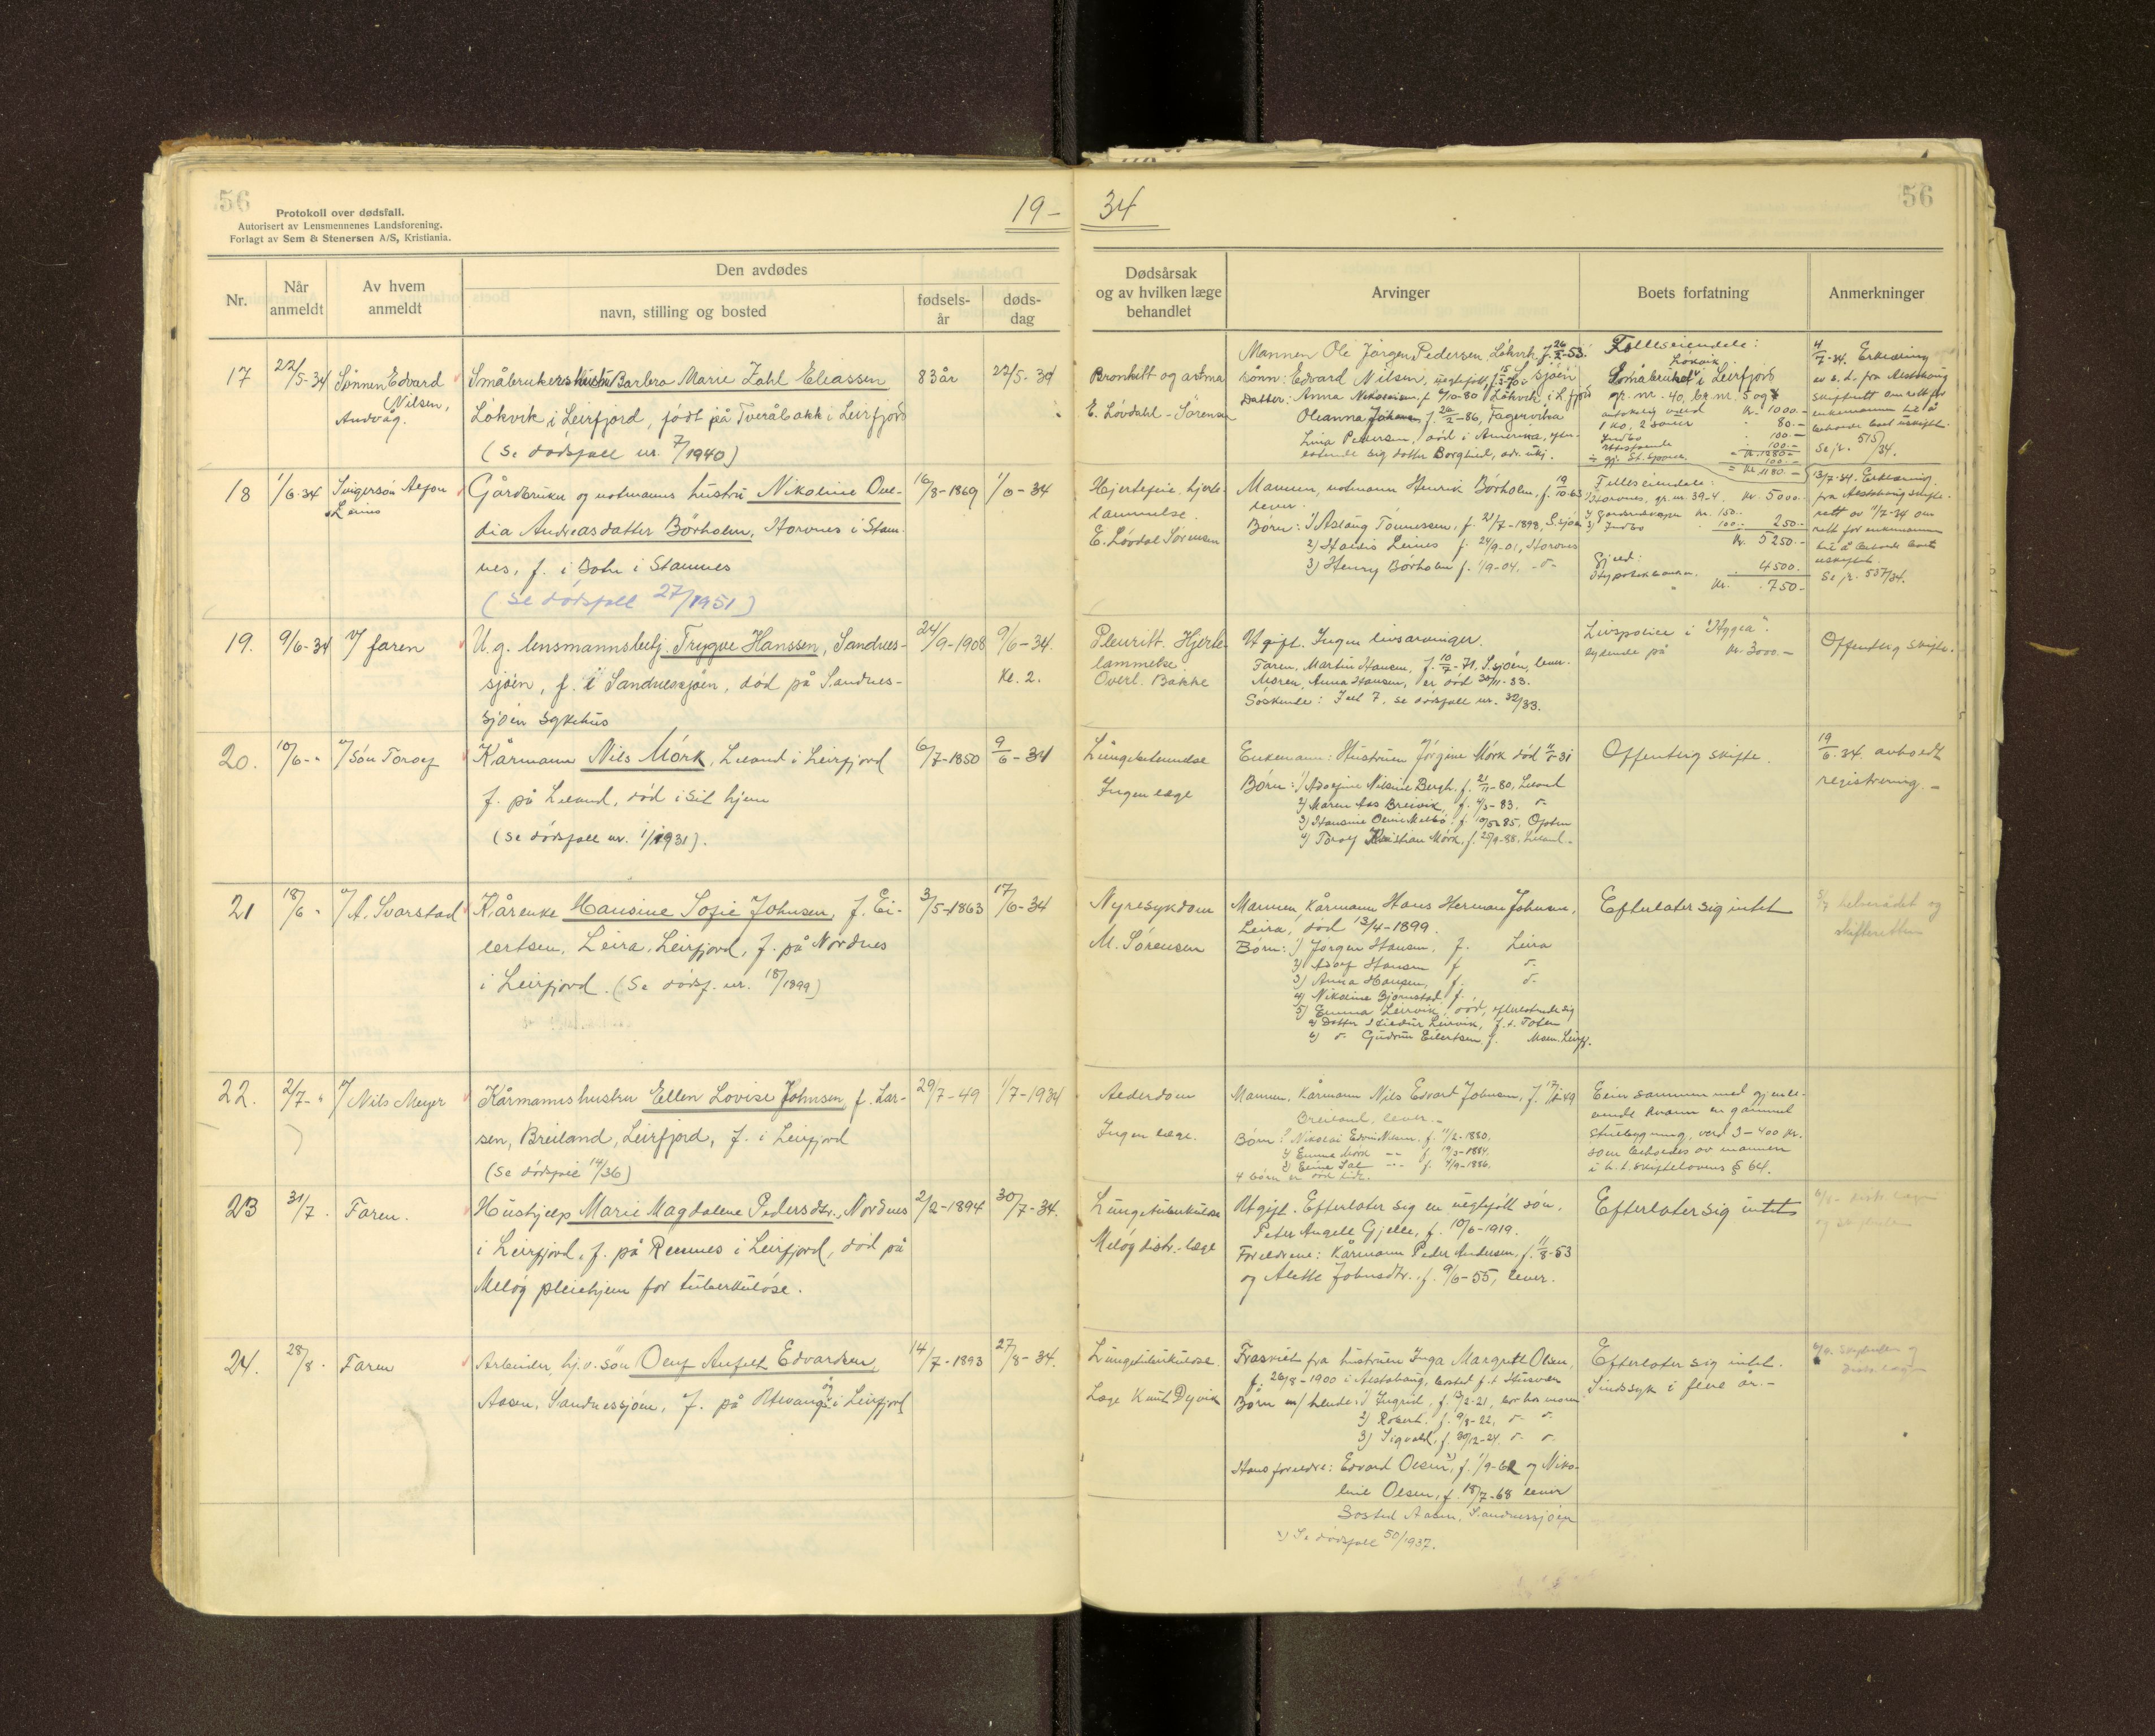 56
Protokoll over dødsfall.
Autorisert av Lensmennenes Landsforening.
Forlagt av Sem & Stenersen A/S, Kristiania.
19- 34
56
Nr.
Når anmeldt
Av hvem anmeldt
Den avdødes
navn, stilling og bosted
fødsels-år
døds-dag
Dødsårsak og av hvilken læge behandlet
Arvinger
Boets forfatning
Anmerkninger
17
22/5-34
Sønnen Edvard
Nilsen,
Andvåg.
Småbrukers hustru Barbro Marie Zahl Eliassen
Løkvik i Leirfjord, født på Tveråbakk i Leirfjord
(Se dødsfall nr. 7/1940)
83 år
22/5-34
Bronkitt og astma
E. Løvdahl-Sørensen
Mannen Ole Jørgen Pedersen, Løkvik, f. 26/2-53.
Sønn: Edvard Nilsen,
Datter: Anna Nikolaisen, f. 6/10-80 Løkvik i L.fjord
Oleanna f. 20/2-86, Fagervika
Lina Pedersen, død i Amerika,
sig datter Borghild, adr. ukj.
Felleseiendele:
Løkvik
Småbruket i Leirfjord
gr. nr. 40, br. nr. 5 og
kr. 1000.-
1 ko, 2 sauer 80.-
Indbo 100.-
100.-
kr. 1280.-
100.-
= kr. 1180.-
4/7-34. Erklæring
fra Alstahaug
skifterett om rett for
enkemann til å
beholde boet uskiftet.
Se jr. 515/34.
18
1/6-34
Svigersøn Alfon
Leines
Gårdbruker og notmanns hustru Nikoline Ove-
dia Andreasdatter Børholm, Horvnes i Stam-
nes, f. i Botn i Stamnes
(Se dødsfall 27/1951)
16/8-1869
1/6-34
Hjertefeil, hjerte-
lammelse.
E. Løvdal Sørensen
Mannen, notmann Henrik Børholm, f. 19/10-63
lever.
Børn: 1) Aslaug Tønnessen, f. 21/7-1898, S.sjøen
2) Hældis Leines f. 24/9-01, Horvnes
3) Henry Børholm f. 1/9-04. -"-
Felleseiendele:
1) Horvnes, gr. nr. 39-4. kr. 5000.-
2) Gardsredskaper kr. 150.-
3) Indbo 100.- 250.-
kr. 5250.-
Gjeld:
Hypotekbanken. 4500.-
kr. 750.-
13/7-34. Erklæring
fra Alstahaug skifte-
rett av 11/7-34 om
rett for enkemannen
til å beholde boet
uskiftet.
Se jr. 537/34.
19.
9/6-34
v/ faren
U.g. lensmannsbetj. Trygve Hanssen, Sandnes-
sjøen, f. i Sandnessjøen, død på Sandnes-
sjøen sykehus
24/9-1908
9/6-34.
kl. 2.
Pleuritt. Hjerte-
lammelse.
Overl. Bakke
Ugift. Ingen livsarvinger.
Faren, Martin Hansen, f. 10/7-71, S.sjøen, lever.
Moren, Anna Hansen, er død 30/11-33.
Søskende: I alt 7, se dødsfall nr. 32/33.
Livspolice i "Hygea".
lydende på kr. 3000.-
Offentlig skifte.
20.
10/6-"
v/ Søn Toralf
Kårmann Nils Mørk, Leland i Leirfjord
f. på Leland, død i sit hjem
(Se dødsfall nr. 1/1931).
6/7-1850
9/6-34
Lungebetennelse
Ingen læge
Enkemann: Hustruen Jørgine Mørk død
Børn: 1) Adolfine Nilsine Bergh, f. 21/11-80, Leland
2) Maren Aas Breivik, f. 4/3-83. -"-
3) Hansine Oline Melbø f. 10/5-85,
4) Toralf Kristian Mørk, f. 25/9-88. Leland.
Offentlig skifte.
19/6-34. avholdt
registrering.-
21
18/6-"
v/ A. Svarstad
Kårenke Hansine Sofie Johnsen, f. Ei-
lertsen, Leira, Leirfjord, f. på Nordnes
i Leirfjord. (Se dødsf. nr. 18/1899)
3/5-1863
17/6-34
Nyresykdom
M. Sørensen
Mannen, Kårmann Hans Herman Johnsen,
Leira, død 13/4-1899.
Børn: 1) Jørgen Hansen, f. Leira
2) Adolf Hansen f. -"-
3) Anna Hansen, f. -"-
4) Nikoline Bjørnstad f.
5) Emma Leirvik, død, efterlatende sig
a) Datter Leirvik, f. t. Toten
6) Gudrun Eilertsen f. Leirfj.
Efterlater sig intet
5/7 helserådet og
skifteretten
22.
2/7-"
v/ Nils Meyer
Kårmannshustru Ellen Lovise Johnsen f. Lar-
sen, Breiland, Leirfjord, f. i Leirfjord
(Se dødsfall 14/36)
29/7-49
1/7-1934
Alderdom
Ingen læge.
Mannen, Kårmann Nils Edvard Johnsen, f.
Breiland, lever.-
Børn: 1) Nikolai Edvin Nilsen, f. 11/2-1880.
2) Emma Mørk -"- f. 19/3-1884.
3) Eline -"- f. 4/9-1886.
4 børn er død
Eier sammen med gjenle-
vende mann en gammel
stuebygning, verd 3-400 kr.
som beholdes av mannen
i h. t. skiftelovens § 64.
23
31/7.
Faren.
Hushjelp Marie Magdalene Pedersdtr., Nordnes
i Leirfjord, f. på Reines i Leirfjord, død på
Meløy pleiehjem for tuberkuløse.
2/2-1894
30/7-34.
Lungetuberkulose
Meløy distr.-læge
Ugift. Efterlater sig en uegtefødt søn,
Peter Angell Gjelle, f. 10/6-1919.
Foreldrene: Kårmann Peder Andersen, f. 11/8-53
og Alette Johnsdtr., f. 9/6-55, lever.
Efterlater sig intet
24.
28/8.
Faren
Arbeider, hj.v. søn Oluf Anfelt Edvardsen,
Aasen, Sandnessjøen, f. på Ulvangsøy i Leirfjord
14/7-1893
27/8-34.
Lungetuberkulose.
Læge Knut Dyvik
Fraskilt fra hustruen Inga Margrete Olsen,
f. 26/8-1900 i Alstahaug, bosted f.t. Husvær
Børn m/ hende: 1) Ingrid, f. 13/2-21, bor hos moren
2) Robert. f. 9/8-22, -"- -"-
3) Sigvald, f. 30/12-24. -"- -"-
Hans foreldre: Edvard Olsen x), f. 1/9-62 og Niko-
line Olsen, f. 18/7-68 lever
Bosted Aasen, Sandnessjøen
x) Se dødsfall 50/1937.
Efterlater sig intet.
Sindssyk i flere år.-